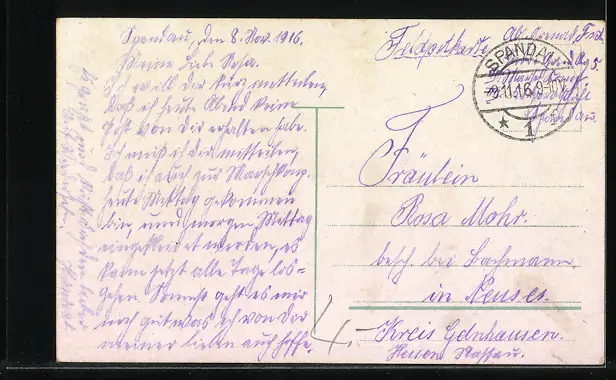 Spandau, den 8. Nov. 1916.
Meine liebe Rosa.
Ich will dir kurz mitteilen,
daß ich heute Abend keine
Post von dir erhalten habe.
Ich muß ich dir mitteilen,
daß ich auch zur Marschkomp.
heute Mittag gekommen
bin, und morgen Mittag
eingekleidet werden, es
kann jetzt alle Tage los-
gehen. Sonst geht es mir
noch gut was ich von dir
meiner lieben auch hoffe.
Feldpostkarte
SPANDAU
9.11.16. 9-10V.
* 1
Spandau
Fräulein
Rosa Mohr.
besch. bei Bachmann.
in Neuses
Kreis Gelnhausen.
Hessen Nassau.
4.-